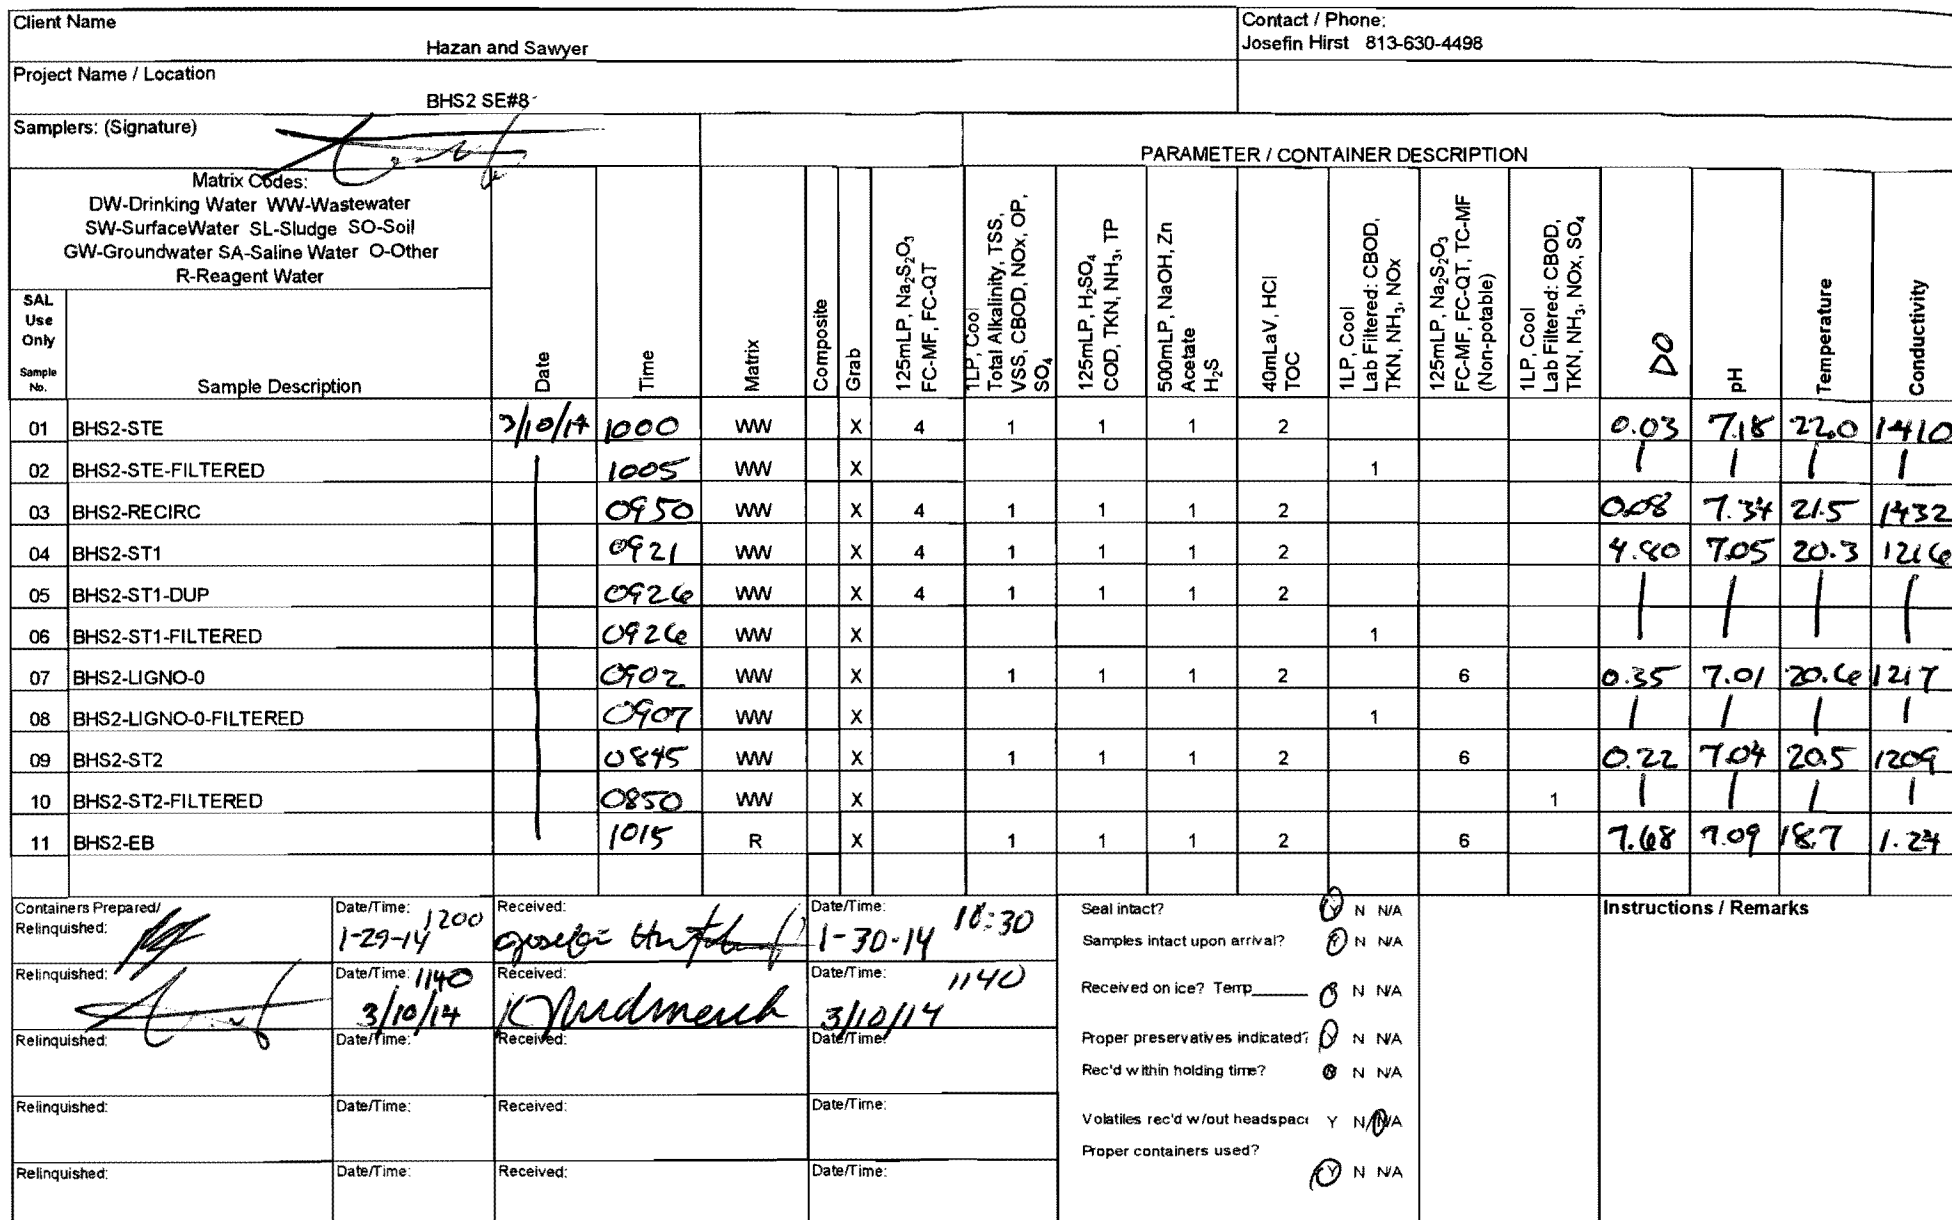 Client Name
Hazan and Sawyer
Contact / Phone:
Josefin Hirst 813-630-4498
Project Name / Location
BHS2 SE#8
Samplers: (Signature)
PARAMETER / CONTAINER DESCRIPTION
Matrix Codes:
DW-Drinking Water WW-Wastewater
SW-SurfaceWater SL-Sludge SO-Soil
GW-Groundwater SA-Saline Water O-Other
R-Reagent Water
SAL
Use
Only
Sample
No.
Sample Description
Date
Time
Matrix
Composite
Grab
125mLP, Na₂S₂O₃
FC-MF, FC-QT
1LP, Cool
Total Alkalinity, TSS,
VSS, CBOD, NOx, OP,
SO₄
125mLP, H₂SO₄
COD, TKN, NH₃, TP
500mLP, NaOH, Zn
Acetate
H₂S
40mLaV, HCl
TOC
1LP, Cool
Lab Filtered: CBOD,
TKN, NH₃, NOx
125mLP, Na₂S₂O₃
FC-MF, FC-QT, TC-MF
(Non-potable)
1LP, Cool
Lab Filtered: CBOD,
TKN, NH₃, NOx, SO₄
DO
pH
Temperature
Conductivity
01 BHS2-STE 3/10/14 1000 WW X 4 1 1 1 2 0.03 7.18 22.0 1410
02 BHS2-STE-FILTERED 1005 WW X 1
03 BHS2-RECIRC 0950 WW X 4 1 1 1 2 0.08 7.34 21.5 1432
04 BHS2-ST1 0921 WW X 4 1 1 1 2 4.80 7.05 20.3 1216
05 BHS2-ST1-DUP 0926 WW X 4 1 1 1 2
06 BHS2-ST1-FILTERED 0926 WW X 1
07 BHS2-LIGNO-0 0902 WW X 1 1 1 2 6 0.35 7.01 20.6 1217
08 BHS2-LIGNO-0-FILTERED 0907 WW X 1
09 BHS2-ST2 0845 WW X 1 1 1 2 6 0.22 7.04 20.5 1209
10 BHS2-ST2-FILTERED 0850 WW X 1
11 BHS2-EB 1015 R X 1 1 1 2 6 7.68 7.09 18.7 1.24
Containers Prepared/
Relinquished:
Date/Time: 1200
1-29-14
Received:
Date/Time:
1-30-14 18:30
Relinquished:
Date/Time: 1140
3/10/14
Received:
Date/Time: 1140
3/10/14
Relinquished: Date/Time: Received: Date/Time:
Relinquished: Date/Time: Received: Date/Time:
Relinquished: Date/Time: Received: Date/Time:
Seal intact? Y N N/A
Samples intact upon arrival? Y N N/A
Received on ice? Temp______ Y N N/A
Proper preservatives indicated? Y N N/A
Rec'd within holding time? Y N N/A
Volatiles rec'd w/out headspace Y N N/A
Proper containers used?
Y N N/A
Instructions / Remarks